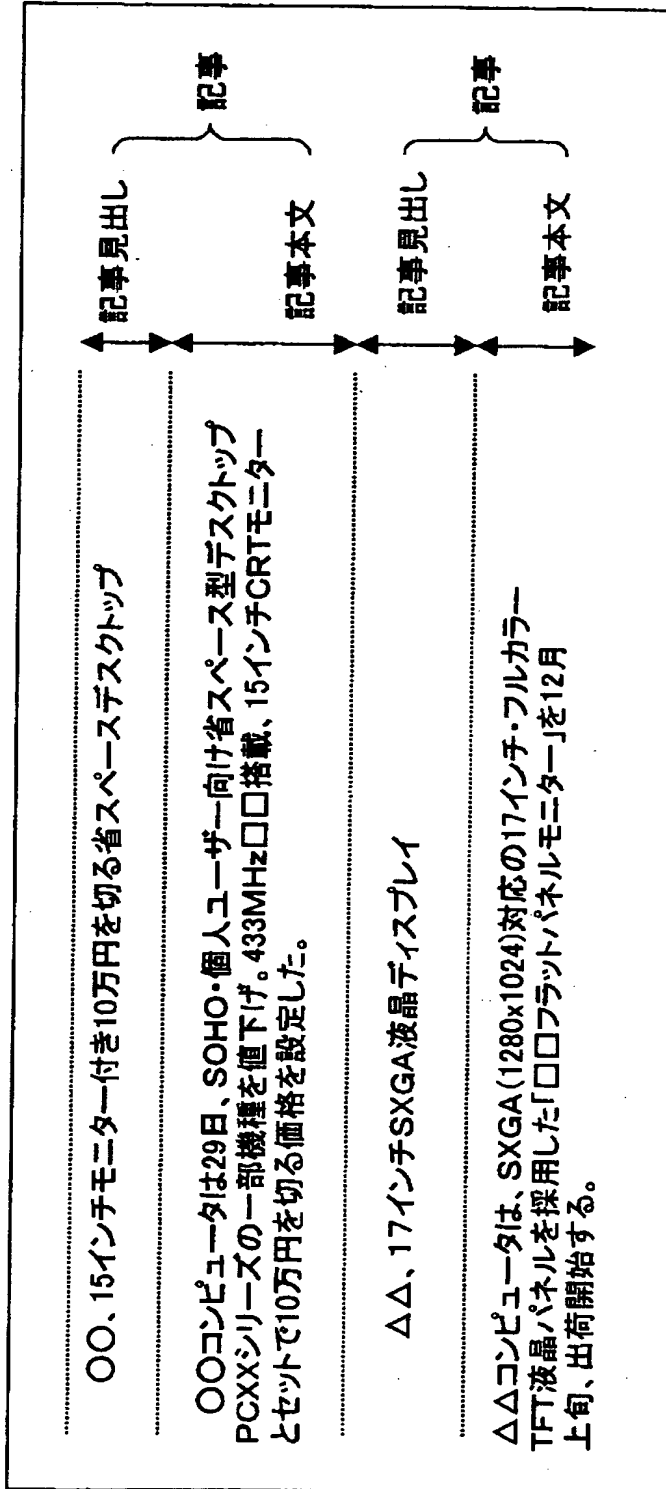 〇〇、15インチモニター付き10万円を切る省スペースデスクトップ
記事見出し
〇〇コンピュータは29日、SOHO・個人ユーザー向け省スペース型デスクトップ
PCXXシリーズの一部機種を値下げ。433MHz□□搭載、15インチCRTモニター
とセットで10万円を切る価格を設定した。
記事本文
記事
△△、17インチSXGA液晶ディスプレイ
記事見出し
△△コンピュータは、SXGA(1280x1024)対応の17インチ・フルカラー
TFT液晶パネルを採用した「□□フラットパネルモニター」を12月
上旬、出荷開始する。
記事本文
記事